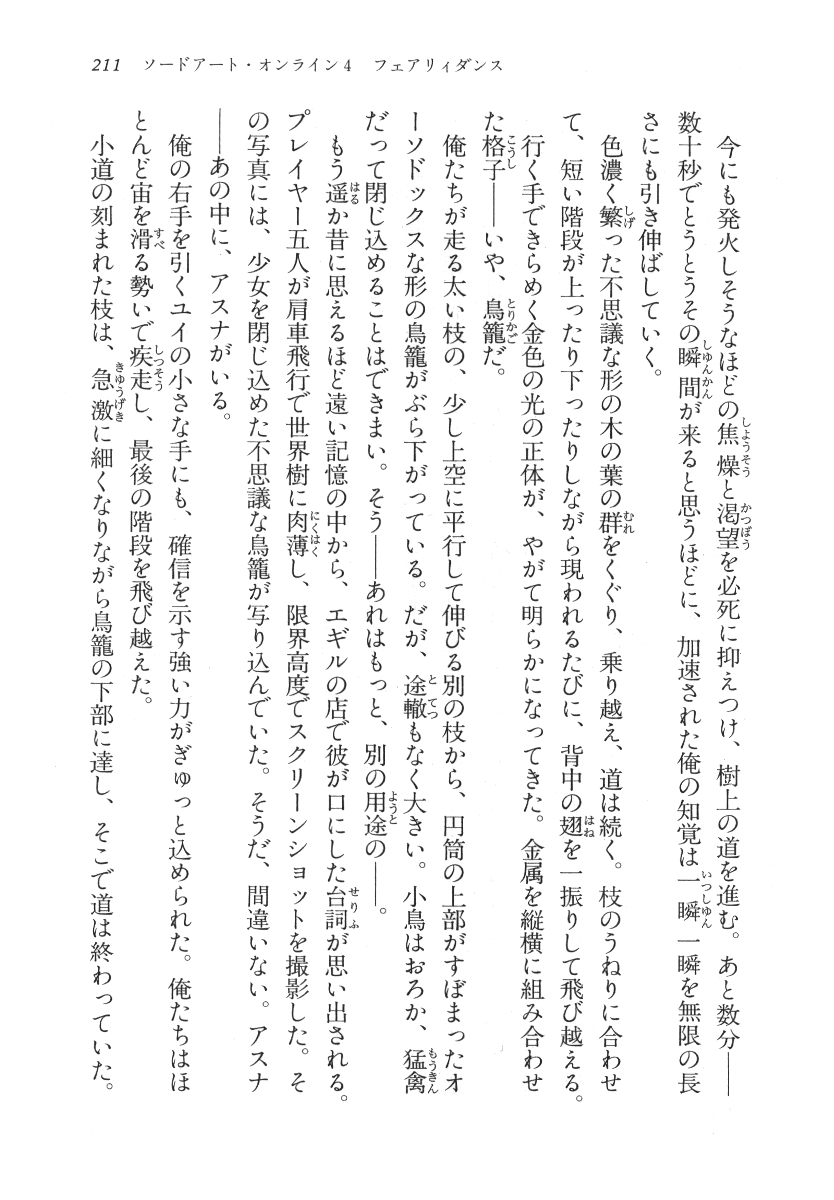 211　ソードアート・オンライン4　フェアリィダンス
　今にも発火しそうなほどの焦燥と渇望を必死に抑えつけ、樹上の道を進む。あと数分――
数十秒でとうとうその瞬間が来ると思うほどに、加速された俺の知覚は一瞬一瞬を無限の長
さにも引き伸ばしていく。
　色濃く繁った不思議な形の木の葉の群をくぐり、乗り越え、道は続く。枝のうねりに合わせ
て、短い階段が上ったり下ったりしながら現われるたびに、背中の翅を一振りして飛び越える。
　行く手できらめく金色の光の正体が、やがて明らかになってきた。金属を縦横に組み合わせ
た格子――いや、鳥籠だ。
　俺たちが走る太い枝の、少し上空に平行して伸びる別の枝から、円筒の上部がすぼまったオ
ーソドックスな形の鳥籠がぶら下がっている。だが、途轍もなく大きい。小鳥はおろか、猛禽
だって閉じ込めることはできまい。そう――あれはもっと、別の用途の――。
　もう遥か昔に思えるほど遠い記憶の中から、エギルの店で彼が口にした台詞が思い出される。
プレイヤー五人が肩車飛行で世界樹に肉薄し、限界高度でスクリーンショットを撮影した。そ
の写真には、少女を閉じ込めた不思議な鳥籠が写り込んでいた。そうだ、間違いない。アスナ
――あの中に、アスナがいる。
　俺の右手を引くユイの小さな手にも、確信を示す強い力がぎゅっと込められた。俺たちはほ
とんど宙を滑る勢いで疾走し、最後の階段を飛び越えた。
　小道の刻まれた枝は、急激に細くなりながら鳥籠の下部に達し、そこで道は終わっていた。